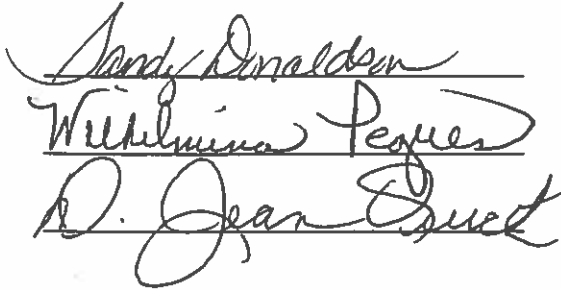 Sandy Donaldson
Wilhelmina Pegues
D. Jean